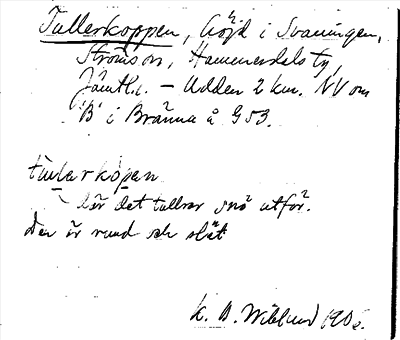 Tullerkoppen, höjd i Svaningen,
Ströms sn, Hammerdals tg,
Jämtl.l. – Udden 2 km. NV om
'B' i Bränna å G53.
tullarkopen
här det tullrar snö utför.
Den är rund och slät
K. B. Wiklund 190